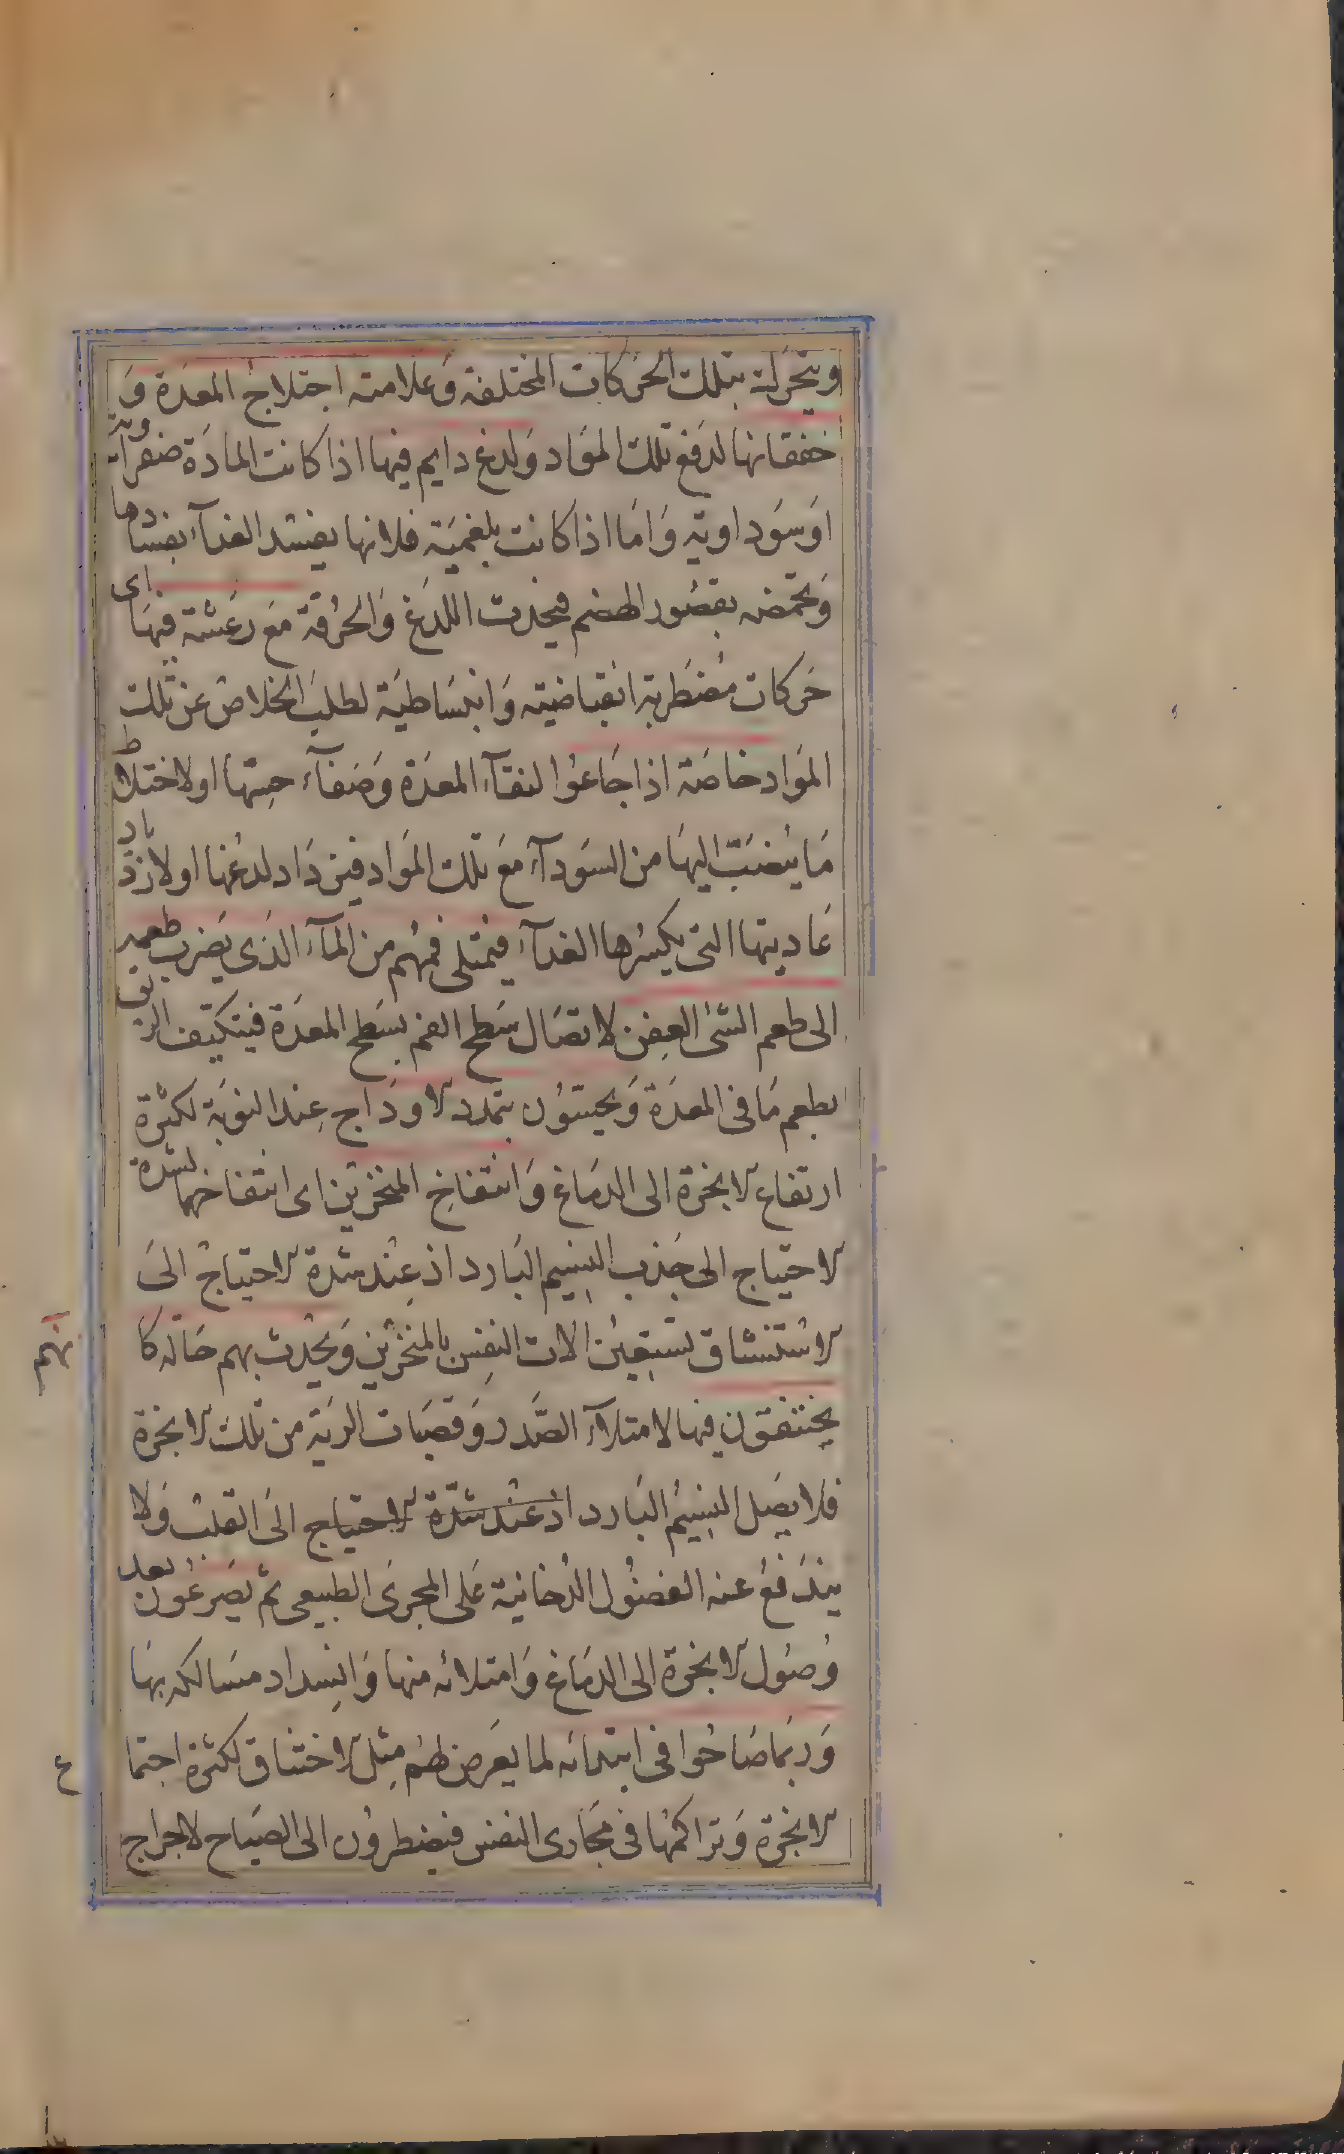 ويتحرك بتلك الحركات المختلفة وعلامته اختلاج المعدة و
خفقانها لدفع تلك المواد ولدغ دايم فيها اذا كانت المادة صفراوية
او سوداوية واما اذا كانت بلغمية فلانها يفسد الغذاء بفسادها
وتحمضه بقصور الهضم فيحدث اللدغ والحرقة مع رعشة فيها اى
حركات مضطربة انقباضية وانبساطية لطلب الخلاص عن تلك
المواد خاصة اذا جاعوا لنقاء المعدة وصفاء حسها او لاختلاط
ما ينصب اليها من السوداء مع تلك المواد فيزداد لدغها او لازدياد
عاديتها التى يكسرها الغذاء فيمتلى فمهم من الماء الذى يضرب طعمه
الى طعم الشئ العفن لاتصال سطح الفم بسطح المعدة فيتكيف الريق
بطعم ما فى المعدة ويحسون بتمدد الاوداج عند النوبة لكثرة
ارتفاع الابخرة الى الدماغ وانتفاخ المنخرين اى انتفاخهما لشدة
الاحتياج الى جذب النسيم البارد اذ عند شدة الاحتياج الى
الاستنشاق تستعين الات النفس بالمنخرين ويحدث بهم حالة كا
نهم
يختنقون فيها لامتلاء الصدر وقصبات الرية من تلك الابخرة
فلا يصل النسيم البارد اذ عند شدة الاحتياج الى القلب ولا
يندفع عنه الفضول الدخانية على المجرى الطبيعى ثم يصرعون بعد
وصول الابخرة الى الدماغ وامتلائه منها وانسداد مسالكه بها
وربما صاحوا فى ابتدائه لما يعرض لهم مثل الاختناق لكثرة اجتما
ع
الابخرة وتراكمها فى مجارى النفس فيضطرون الى الصياح لاخراج